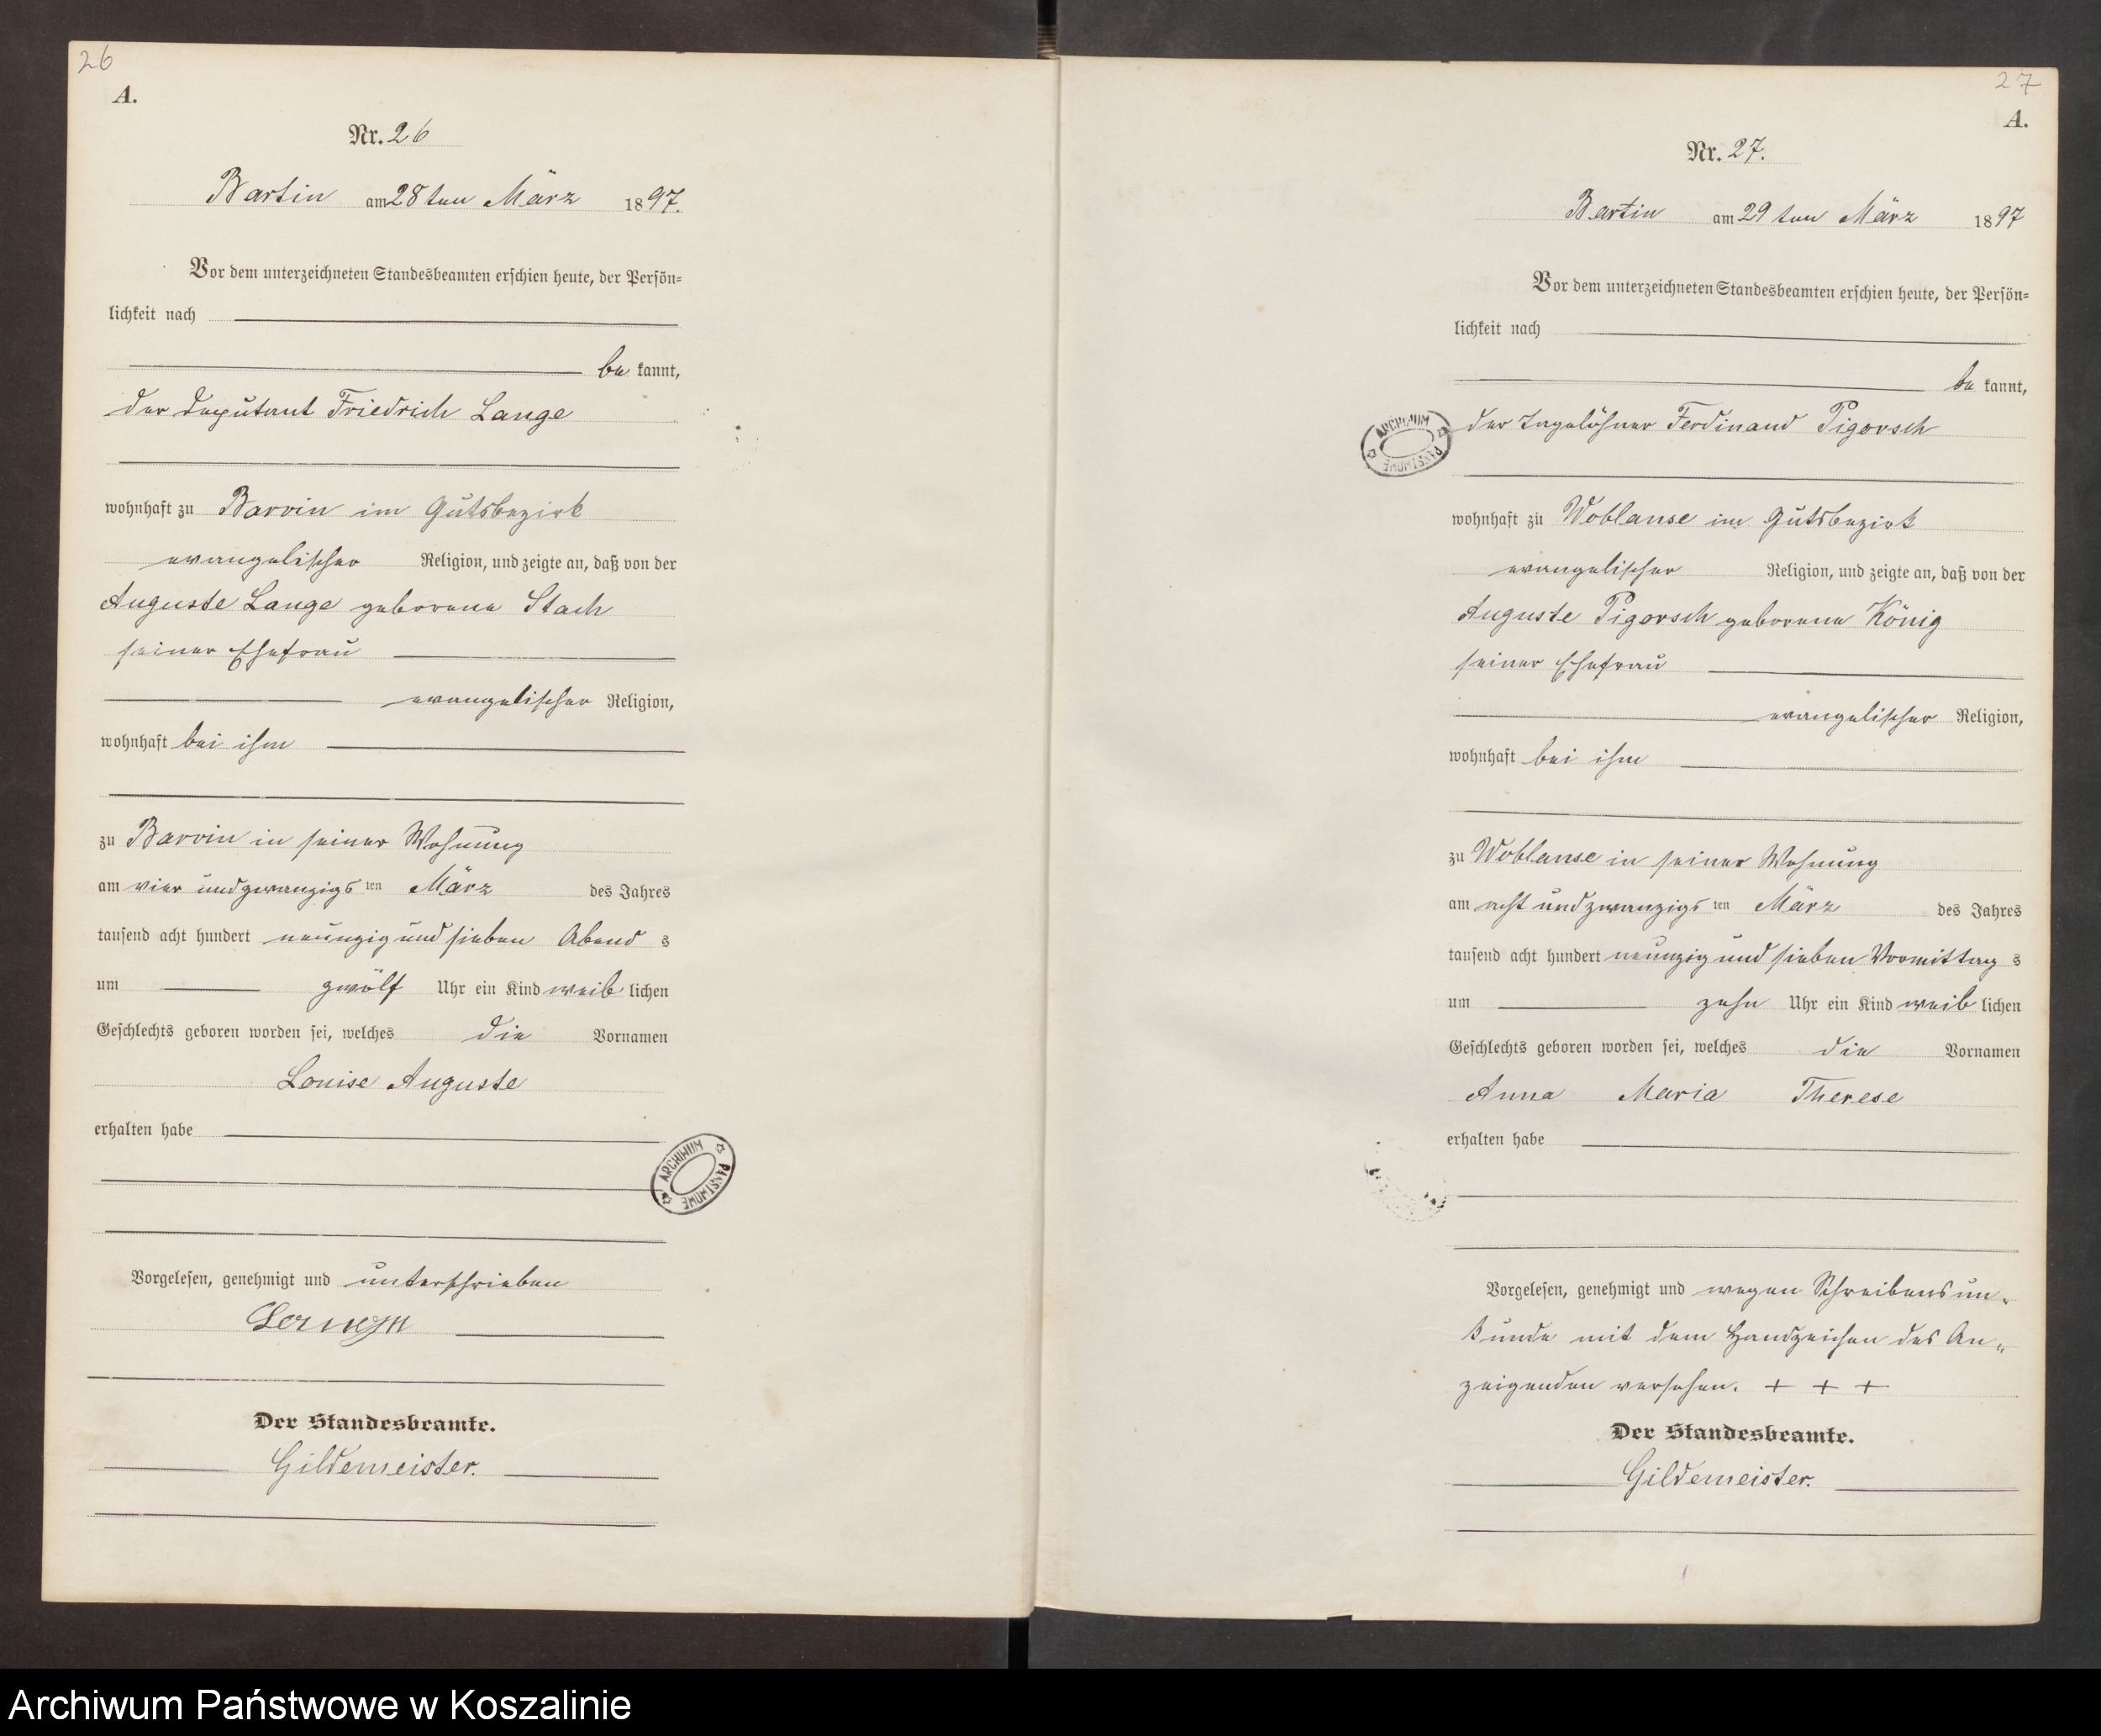 26
A.
Nr. 26
Bartin am 28ten März 1897.
Vor dem unterzeichneten Standesbeamten erschien heute, der Persön=
lichkeit nach
be kannt,
der Deputant Friedrich Lange
wohnhaft zu Barvin im Gutsbezirk
evangelischer Religion, und zeigte an, daß von der
Auguste Lange geborene Stach
seiner Ehefrau
evangelischer Religion,
wohnhaft bei ihm
zu Barvin in seiner Wohnung
am vier und zwanzigs ten März des Jahres
tausend acht hundert neunzig und sieben Abend s
um zwölf Uhr ein Kind weib lichen
Geschlechts geboren worden sei, welches die Vornamen
Louise Auguste
erhalten habe
ARCHIWUM PAŃSTWOWE
Vorgelesen, genehmigt und unterschrieben
Der Standesbeamte.
Gildemeister.
27
A.
Nr. 27.
Bartin am 29ten März 1897
Vor dem unterzeichneten Standesbeamten erschien heute, der Persön=
lichkeit nach
be kannt,
ARCHIWUM PAŃSTWOWE
der Tagelöhner Ferdinand Pigorsch
wohnhaft zu Woblanse im Gutsbezirk
evangelischer Religion, und zeigte an, daß von der
Auguste Pigorsch geborene König
seiner Ehefrau
evangelischer Religion,
wohnhaft bei ihm
zu Woblanse in seiner Wohnung
am acht und zwanzigs ten März des Jahres
tausend acht hundert neunzig und sieben Vormittag s
um zehn Uhr ein Kind weib lichen
Geschlechts geboren worden sei, welches die Vornamen
Anna Maria Therese
erhalten habe
Vorgelesen, genehmigt und wegen Schreibensun=
kunde mit dem Handzeichen des An=
zeigenden versehen. + + +
Der Standesbeamte.
Gildemeister.
Archiwum Państwowe w Koszalinie